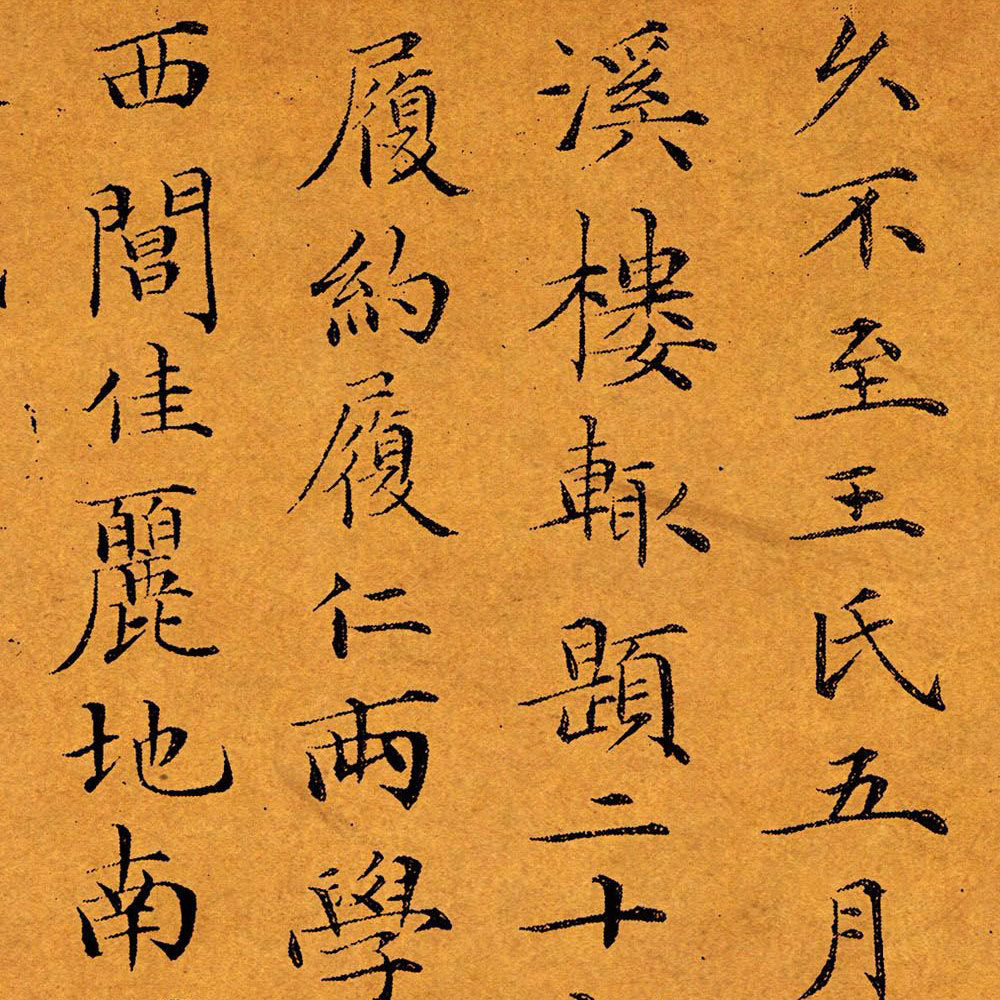 久不至王氏五月
溪樓輒題二十
履約履仁兩學
西閶佳麗地南